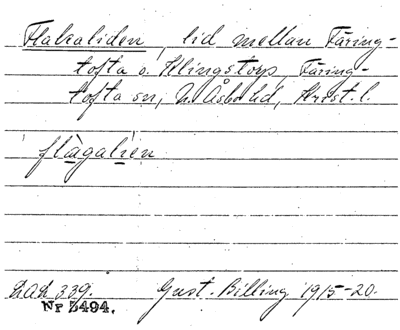 Flakaliden, lid mellan Färing-
tofta o. Klingstorp, Färing-
tofta sn, N. Åsbo hd, Krist. l.
flàgalien
LAL 339. Gust. Billing 1915-20.
Nr 5494.